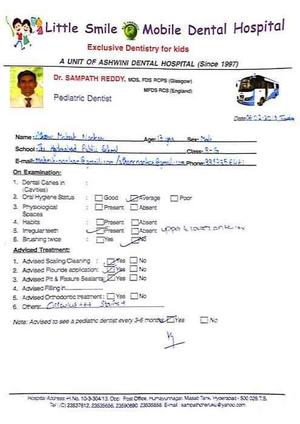 Little Smile Mobile Dental Hospital
Exclusive Dentistry for kids
A UNIT OF ASHWINI DENTAL HOSPITAL (Since 1997)
Dr. SAMPATH REDDY, MDS, FDS RCPS (Glasgow)
MFDS RCS (England)
Pediatric Dentist
Date
Name Age 13 yrs Sex Male
School The Hyderabad Public School Class
E-mail Phone
On Examination:
1. Dental Caries in (Cavities)
2. Oral Hygiene Status : Good Average Poor
3. Physiological Spaces : Present Absent
4. Habits : Present Absent
5. Irregular teeth : Present Absent upper & lower
6. Brushing twice : Yes No
Adviced Treatment:
1. Advised Scaling/Cleaning : Yes No
2. Advised Flouride application : Yes No
3. Advised Pit & Fissure Sealants : Yes No
4. Advised Filling in
5. Advised Orthodontic treatment : Yes No
6. Others:
Note: Advised to see a pediatric dentist every 3-6 months Yes No
Hospital Address: H.No. 10-3-304/13, Opp. Post Office, Humayunnagar, Masab Tank, Hyderabad - 500 028 T.S.